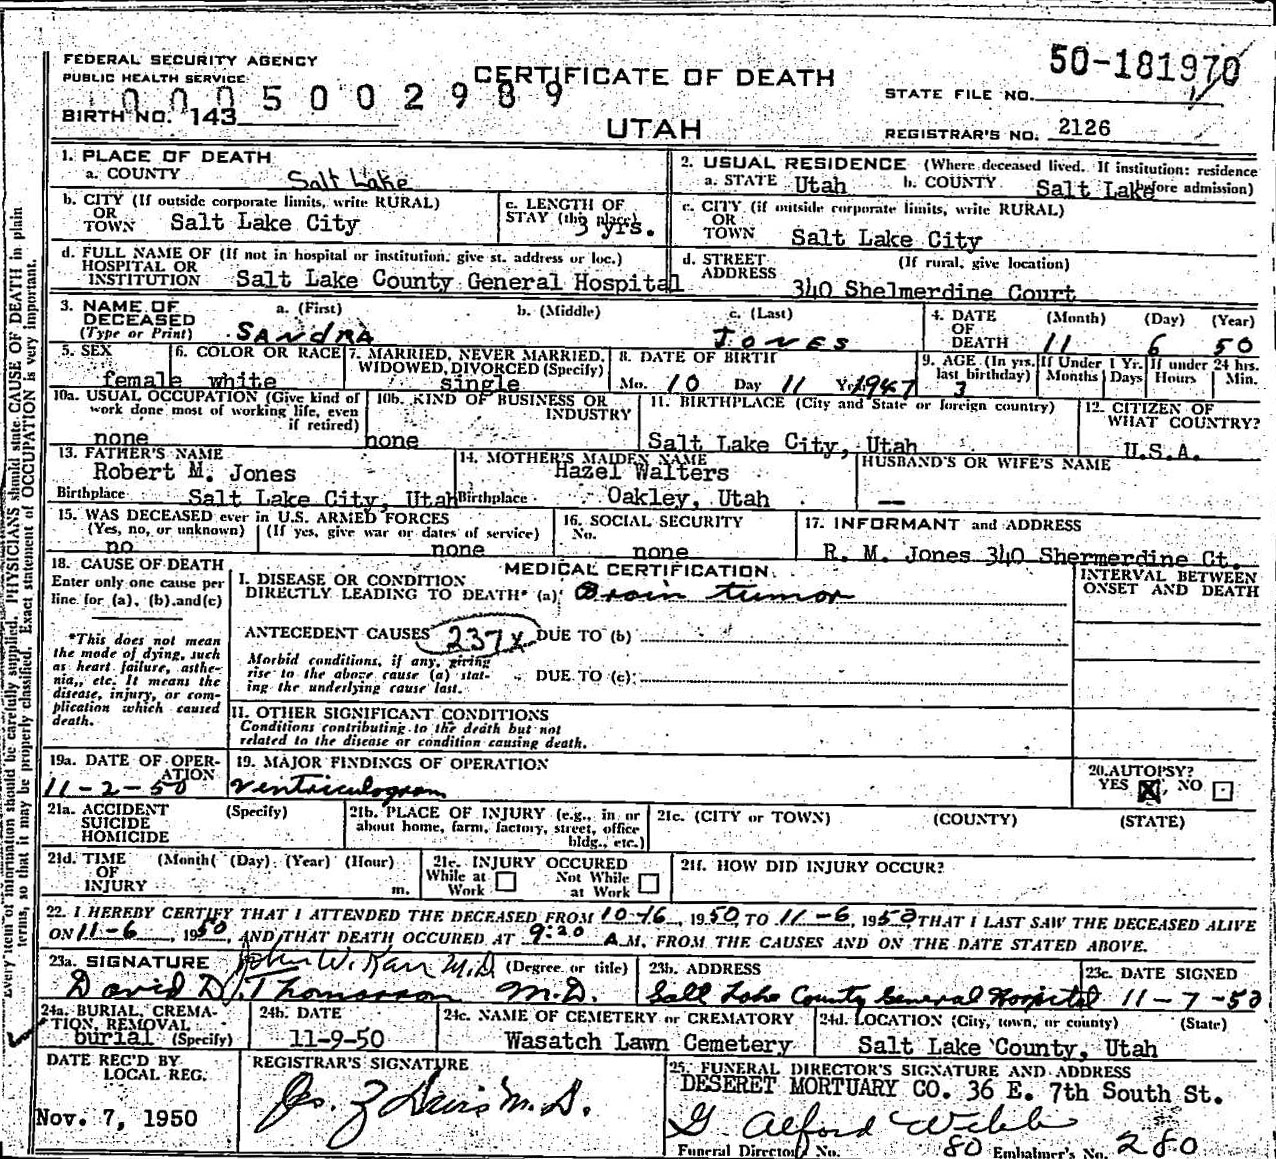 FEDERAL SECURITY AGENCY
PUBLIC HEALTH SERVICE
CERTIFICATE OF DEATH
50-181970
STATE FILE NO.
0005002989
BIRTH NO. 143
UTAH
REGISTRAR'S NO. 2126
1. PLACE OF DEATH
a. COUNTY Salt Lake
2. USUAL RESIDENCE (Where deceased lived. If institution: residence before admission)
a. STATE Utah b. COUNTY Salt Lake
b. CITY (If outside corporate limits, write RURAL)
OR
TOWN Salt Lake City
c. LENGTH OF
STAY (this place)
3 yrs.
c. CITY (if outside corporate limits, write RURAL)
OR
TOWN Salt Lake City
d. FULL NAME OF (If not in hospital or institution, give st. address or loc.)
HOSPITAL OR
INSTITUTION Salt Lake County General Hospital
d. STREET (If rural, give location)
ADDRESS 340 Shelmerdine Court
3. NAME OF a. (First) b. (Middle) c. (Last)
DECEASED
(Type or Print) SANDRA JONES
4. DATE (Month) (Day) (Year)
OF
DEATH 11 6 50
5. SEX
female
6. COLOR OR RACE
white
7. MARRIED, NEVER MARRIED,
WIDOWED, DIVORCED (Specify)
single
8. DATE OF BIRTH
Mo. 10 Day 11 Yr. 1947
9. AGE (In yrs.
last birthday)
3
If Under 1 Yr.
Months Days
If under 24 hrs.
Hours Min.
10a. USUAL OCCUPATION (Give kind of
work done most of working life, even
if retired)
none
10b. KIND OF BUSINESS OR
INDUSTRY
none
11. BIRTHPLACE (City and State or foreign country)
Salt Lake City, Utah
12. CITIZEN OF
WHAT COUNTRY?
U.S.A.
13. FATHER'S NAME
Robert M. Jones
Birthplace Salt Lake City, Utah
14. MOTHER'S MAIDEN NAME
Hazel Walters
Birthplace Oakley, Utah
HUSBAND'S OR WIFE'S NAME
—
15. WAS DECEASED ever in U.S. ARMED FORCES
(Yes, no, or unknown) (If yes, give war or dates of service)
no none
16. SOCIAL SECURITY
No.
none
17. INFORMANT and ADDRESS
R. M. Jones 340 Shermerdine Ct.
18. CAUSE OF DEATH
Enter only one cause per
line for (a), (b), and (c)
*This does not mean
the mode of dying, such
as heart failure, asthe-
nia, etc. It means the
disease, injury, or com-
plication which caused
death.
MEDICAL CERTIFICATION
I. DISEASE OR CONDITION
DIRECTLY LEADING TO DEATH* (a) Brain tumor
INTERVAL BETWEEN
ONSET AND DEATH
ANTECEDENT CAUSES 237x DUE TO (b)
Morbid conditions, if any, giving
rise to the above cause (a) stat-
ing the underlying cause last.
DUE TO (c)
II. OTHER SIGNIFICANT CONDITIONS
Conditions contributing to the death but not
related to the disease or condition causing death.
19a. DATE OF OPER-
ATION
11-2-50
19. MAJOR FINDINGS OF OPERATION
Ventriculogram
20. AUTOPSY?
YES X, NO
21a. ACCIDENT (Specify)
SUICIDE
HOMICIDE
21b. PLACE OF INJURY (e.g., in or
about home, farm, factory, street, office
bldg., etc.)
21c. (CITY or TOWN) (COUNTY) (STATE)
21d. TIME (Month) (Day) (Year) (Hour)
OF
INJURY m.
21e. INJURY OCCURED
While at Work Not While at Work
21f. HOW DID INJURY OCCUR?
22. I HEREBY CERTIFY THAT I ATTENDED THE DECEASED FROM 10-16, 1950, TO 11-6, 1950, THAT I LAST SAW THE DECEASED ALIVE
ON 11-6, 1950, AND THAT DEATH OCCURED AT 9:20 A.M, FROM THE CAUSES AND ON THE DATE STATED ABOVE.
23a. SIGNATURE John W. Karr M.D. (Degree or title)
David D. Thomasson M.D.
23b. ADDRESS
Salt Lake County General Hospital
23c. DATE SIGNED
11-7-50
24a. BURIAL, CREMA-
TION, REMOVAL
burial (Specify)
24b. DATE
11-9-50
24c. NAME OF CEMETERY or CREMATORY
Wasatch Lawn Cemetery
24d. LOCATION (City, town, or county) (State)
Salt Lake County, Utah
DATE REC'D BY
LOCAL REG.
Nov. 7, 1950
REGISTRAR'S SIGNATURE
Jos. Z Davis M.D.
25. FUNERAL DIRECTOR'S SIGNATURE AND ADDRESS
DESERET MORTUARY CO. 36 E. 7th South St.
G. Alford Webb
Funeral Director No. 80 Embalmer's No. 280
Every item of information should be carefully supplied. PHYSICIANS should state CAUSE OF DEATH in plain
terms, so that it may be properly classified. Exact statement of OCCUPATION is very important.